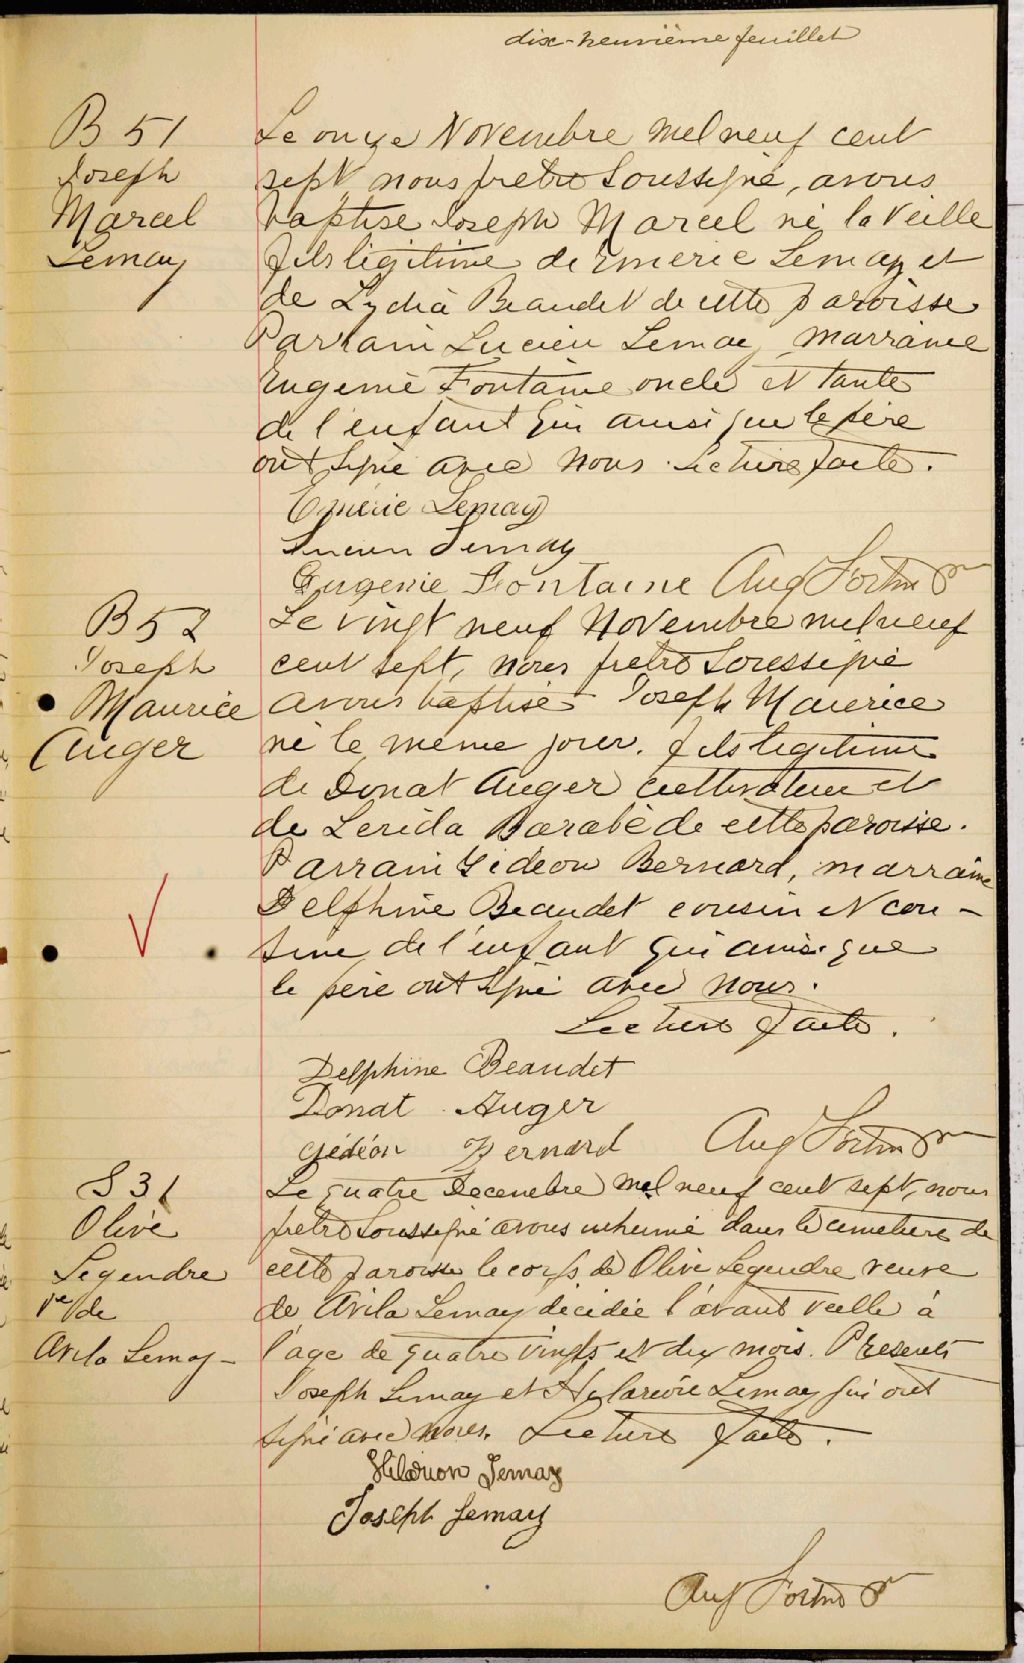 dix-neuvième feuillet
B 51
Joseph
Marcel
Lemay
Le onze Novembre mil neuf cent
sept, nous prêtre soussigné, avons
baptisé Joseph Marcel né la veille
fils légitime de Emérie Lemay et
de Lydia Beaudet de cette paroisse
Parrain Lucien Lemay, marraine
Eugenie Fontaine oncle et tante
de l'enfant qui ainsi que le père
ont signé avec nous. Lecture faite.
Emérie Lemay
Lucien Lemay
Eugenie Fontaine Aug
B 52
Joseph
Maurice
Auger
Le vingt neuf Novembre mil neuf
cent sept, nous prêtre soussigné
avons baptisé Joseph Maurice
né le même jour. fils légitime
de Donat Auger cultivateur et
de Lerida Barabé de cette paroisse.
Parrain Gideon Bernard, marraine
Delphine Beaudet cousin et cou-
sine de l'enfant qui ainsi que
le père ont signé avec nous.
Lecture faite.
Delphine Beaudet
Donat Auger
Gédéon Bernard Aug
S 31
Olive
Legendre
Ve de
Avila Lemay-
Le quatre Decembre mil neuf cent sept, nous
prêtre soussigné avons inhumé dans le cimetière de
cette paroisse le corps de Olive Legendre veuve
de Avila Lemay décédée l'avant veille à
l'age de quatre vingts et dix mois. Présents
Joseph Lemay et Lemay qui ont
signé avec nous. Lecture faite.
Hilarion Lemay
Joseph Lemay
Aug